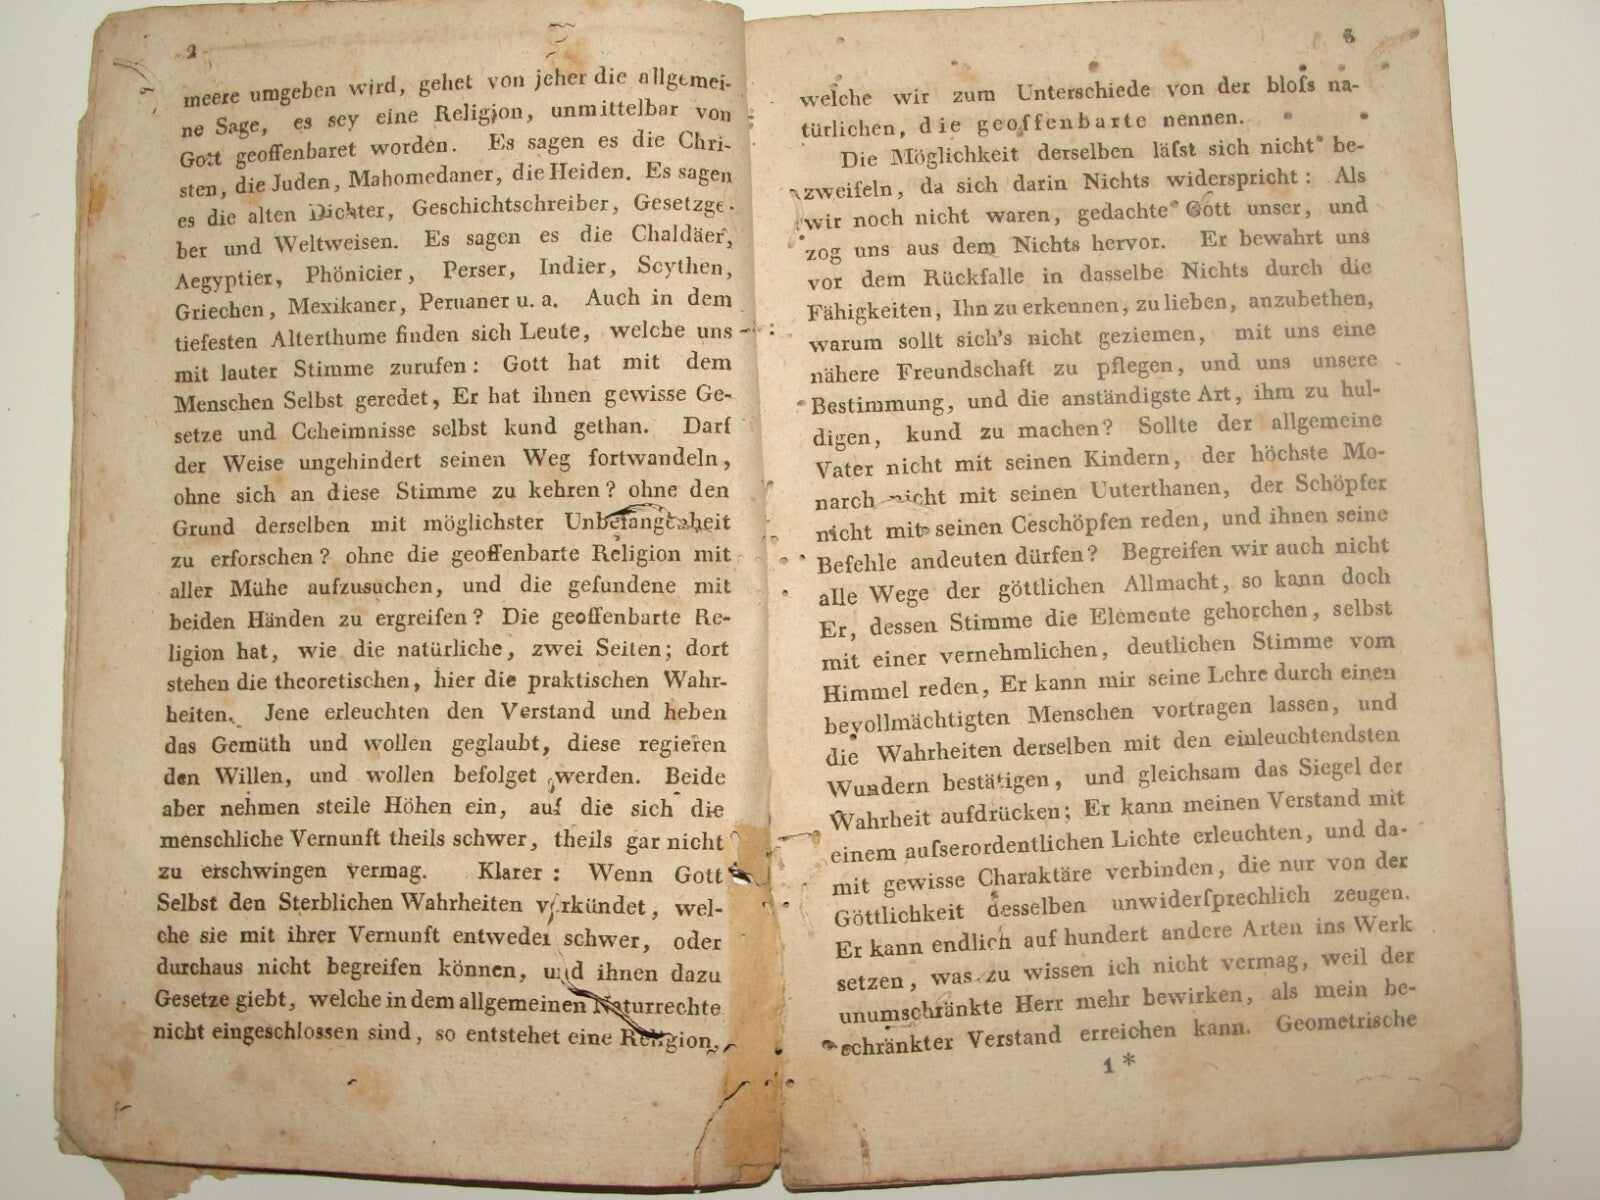 2
meere umgeben wird, gehet von jeher die allgemei-
ne Sage, es sey eine Religion, unmittelbar von
Gott geoffenbaret worden. Es sagen es die Chri-
sten, die Juden, Mahomedaner, die Heiden. Es sagen
es die alten Dichter, Geschichtschreiber, Gesetzge-
ber und Weltweisen. Es sagen es die Chaldäer,
Aegyptier, Phönicier, Perser, Indier, Scythen,
Griechen, Mexikaner, Peruaner u. a. Auch in dem
tiefesten Alterthume finden sich Leute, welche uns
mit lauter Stimme zurufen: Gott hat mit dem
Menschen Selbst geredet, Er hat ihnen gewisse Ge-
setze und Geheimnisse selbst kund gethan. Darf
der Weise ungehindert seinen Weg fortwandeln,
ohne sich an diese Stimme zu kehren? ohne den
Grund derselben mit möglichster Unbefangenheit
zu erforschen? ohne die geoffenbarte Religion mit
aller Mühe aufzusuchen, und die gefundene mit
beiden Händen zu ergreifen? Die geoffenbarte Re-
ligion hat, wie die natürliche, zwei Seiten; dort
stehen die theoretischen, hier die praktischen Wahr-
heiten. Jene erleuchten den Verstand und heben
das Gemüth und wollen geglaubt, diese regieren
den Willen, und wollen befolget werden. Beide
aber nehmen steile Höhen ein, auf die sich die
menschliche Vernunft theils schwer, theils gar nicht
zu erschwingen vermag. Klarer: Wenn Gott
Selbst den Sterblichen Wahrheiten verkündet, wel-
che sie mit ihrer Vernunft entweder schwer, oder
durchaus nicht begreifen können, und ihnen dazu
Gesetze giebt, welche in dem allgemeinen Naturrechte
nicht eingeschlossen sind, so entstehet eine Religion,
3
welche wir zum Unterschiede von der bloſs na-
türlichen, die geoffenbarte nennen.
Die Möglichkeit derselben läſst sich nicht be-
zweifeln, da sich darin Nichts widerspricht: Als
wir noch nicht waren, gedachte Gott unser, und
zog uns aus dem Nichts hervor. Er bewahrt uns
vor dem Rückfalle in dasselbe Nichts durch die
Fähigkeiten, Ihn zu erkennen, zu lieben, anzubethen,
warum sollt sich's nicht geziemen, mit uns eine
nähere Freundschaft zu pflegen, und uns unsere
Bestimmung, und die anständigste Art, ihm zu hul-
digen, kund zu machen? Sollte der allgemeine
Vater nicht mit seinen Kindern, der höchste Mo-
narch nicht mit seinen Uuterthanen, der Schöpfer
nicht mit seinen Geschöpfen reden, und ihnen seine
Befehle andeuten dürfen? Begreifen wir auch nicht
alle Wege der göttlichen Allmacht, so kann doch
Er, dessen Stimme die Elemente gehorchen, selbst
mit einer vernehmlichen, deutlichen Stimme vom
Himmel reden, Er kann mir seine Lehre durch einen
bevollmächtigten Menschen vortragen lassen, und
die Wahrheiten derselben mit den einleuchtendsten
Wundern bestätigen, und gleichsam das Siegel der
Wahrheit aufdrücken; Er kann meinen Verstand mit
einem auſserordentlichen Lichte erleuchten, und da-
mit gewisse Charaktäre verbinden, die nur von der
Göttlichkeit desselben unwiderſprechlich zeugen.
Er kann endlich auf hundert andere Arten ins Werk
setzen, was zu wissen ich nicht vermag, weil der
unumschränkte Herr mehr bewirken, als mein be-
schränkter Verstand erreichen kann. Geometrische
1 *